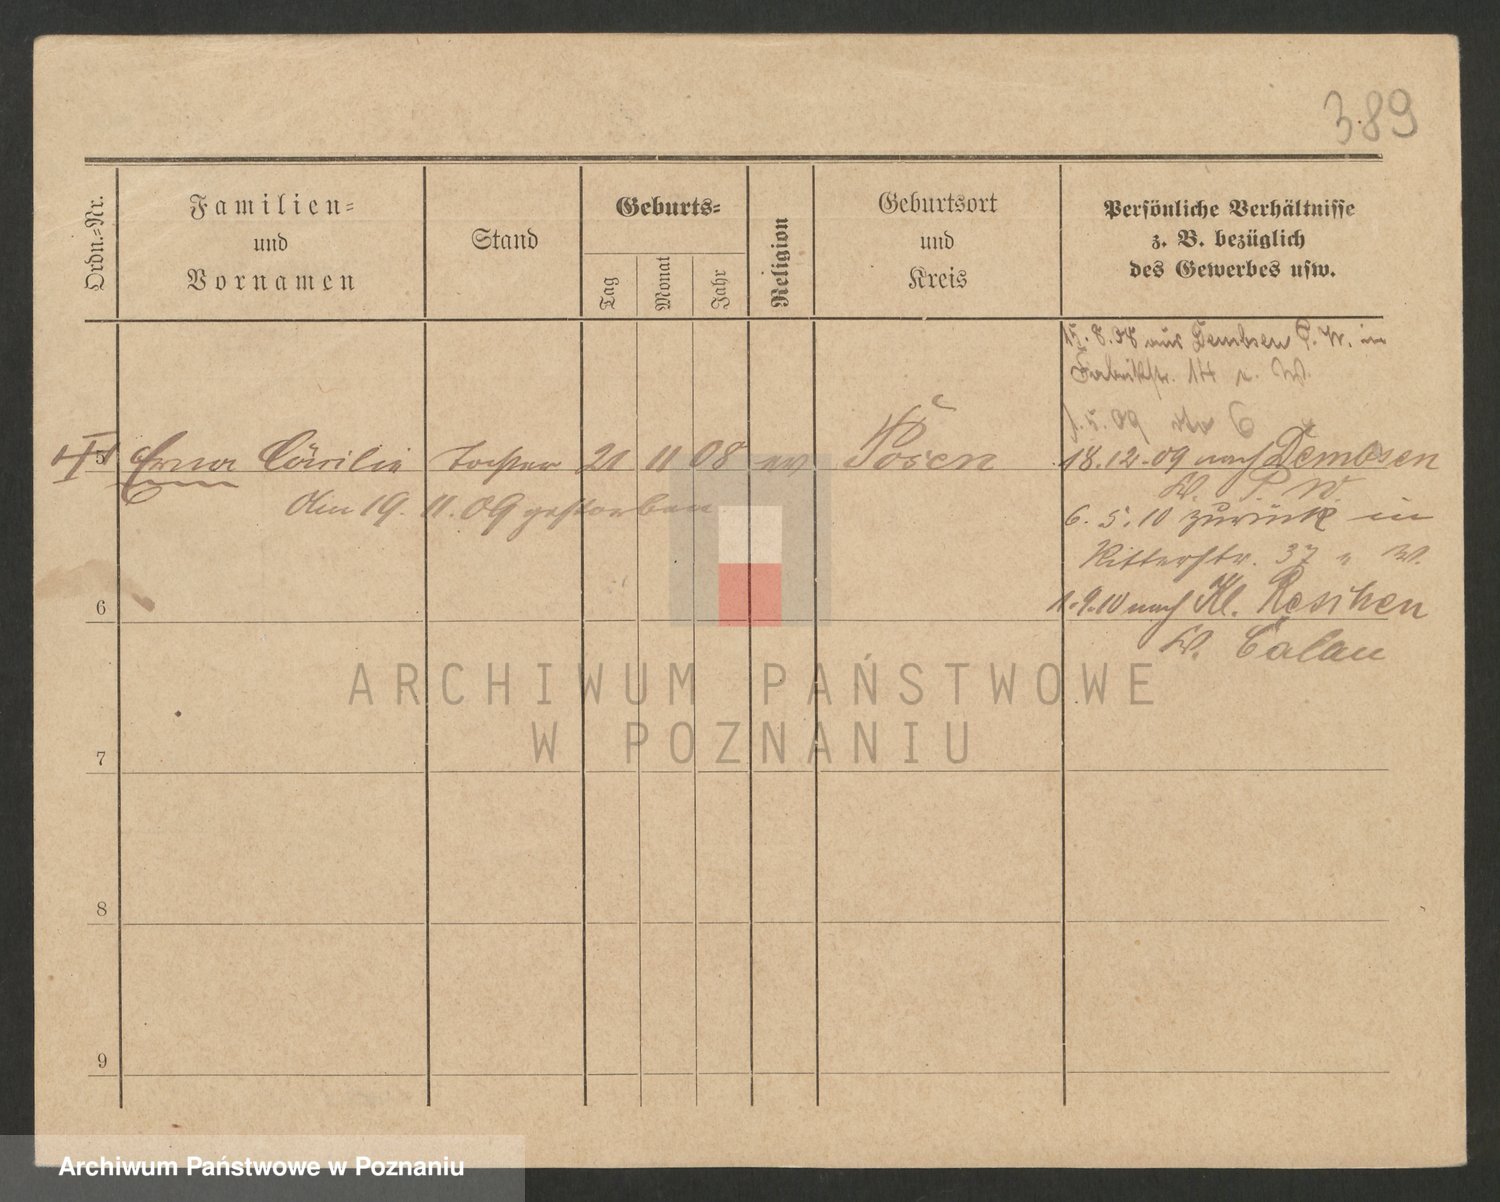 389
Ordn.-Nr.
Familien-
und
Vornamen
Stand
Geburts-
Tag
Monat
Jahr
Religion
Geburtsort
und
Kreis
Persönliche Verhältnisse
z. B. bezüglich
des Gewerbes usw.
15.8.08 aus Dembsen P. W. in
Fabrikstr. 14 W.
1.5.09 6
5 Erna Cäcilie Tochter 21 11 08 ev Posen 18.12.09 nach Dembsen
den 19. 11. 09 gestorben
P. W.
6.5.10 zurück in
Ritterstr. 37 W.
6
1.9.10 nach Kl. Reschen
Calau
ARCHIWUM PAŃSTWOWE
W POZNANIU
7
8
9
Archiwum Państwowe w Poznaniu